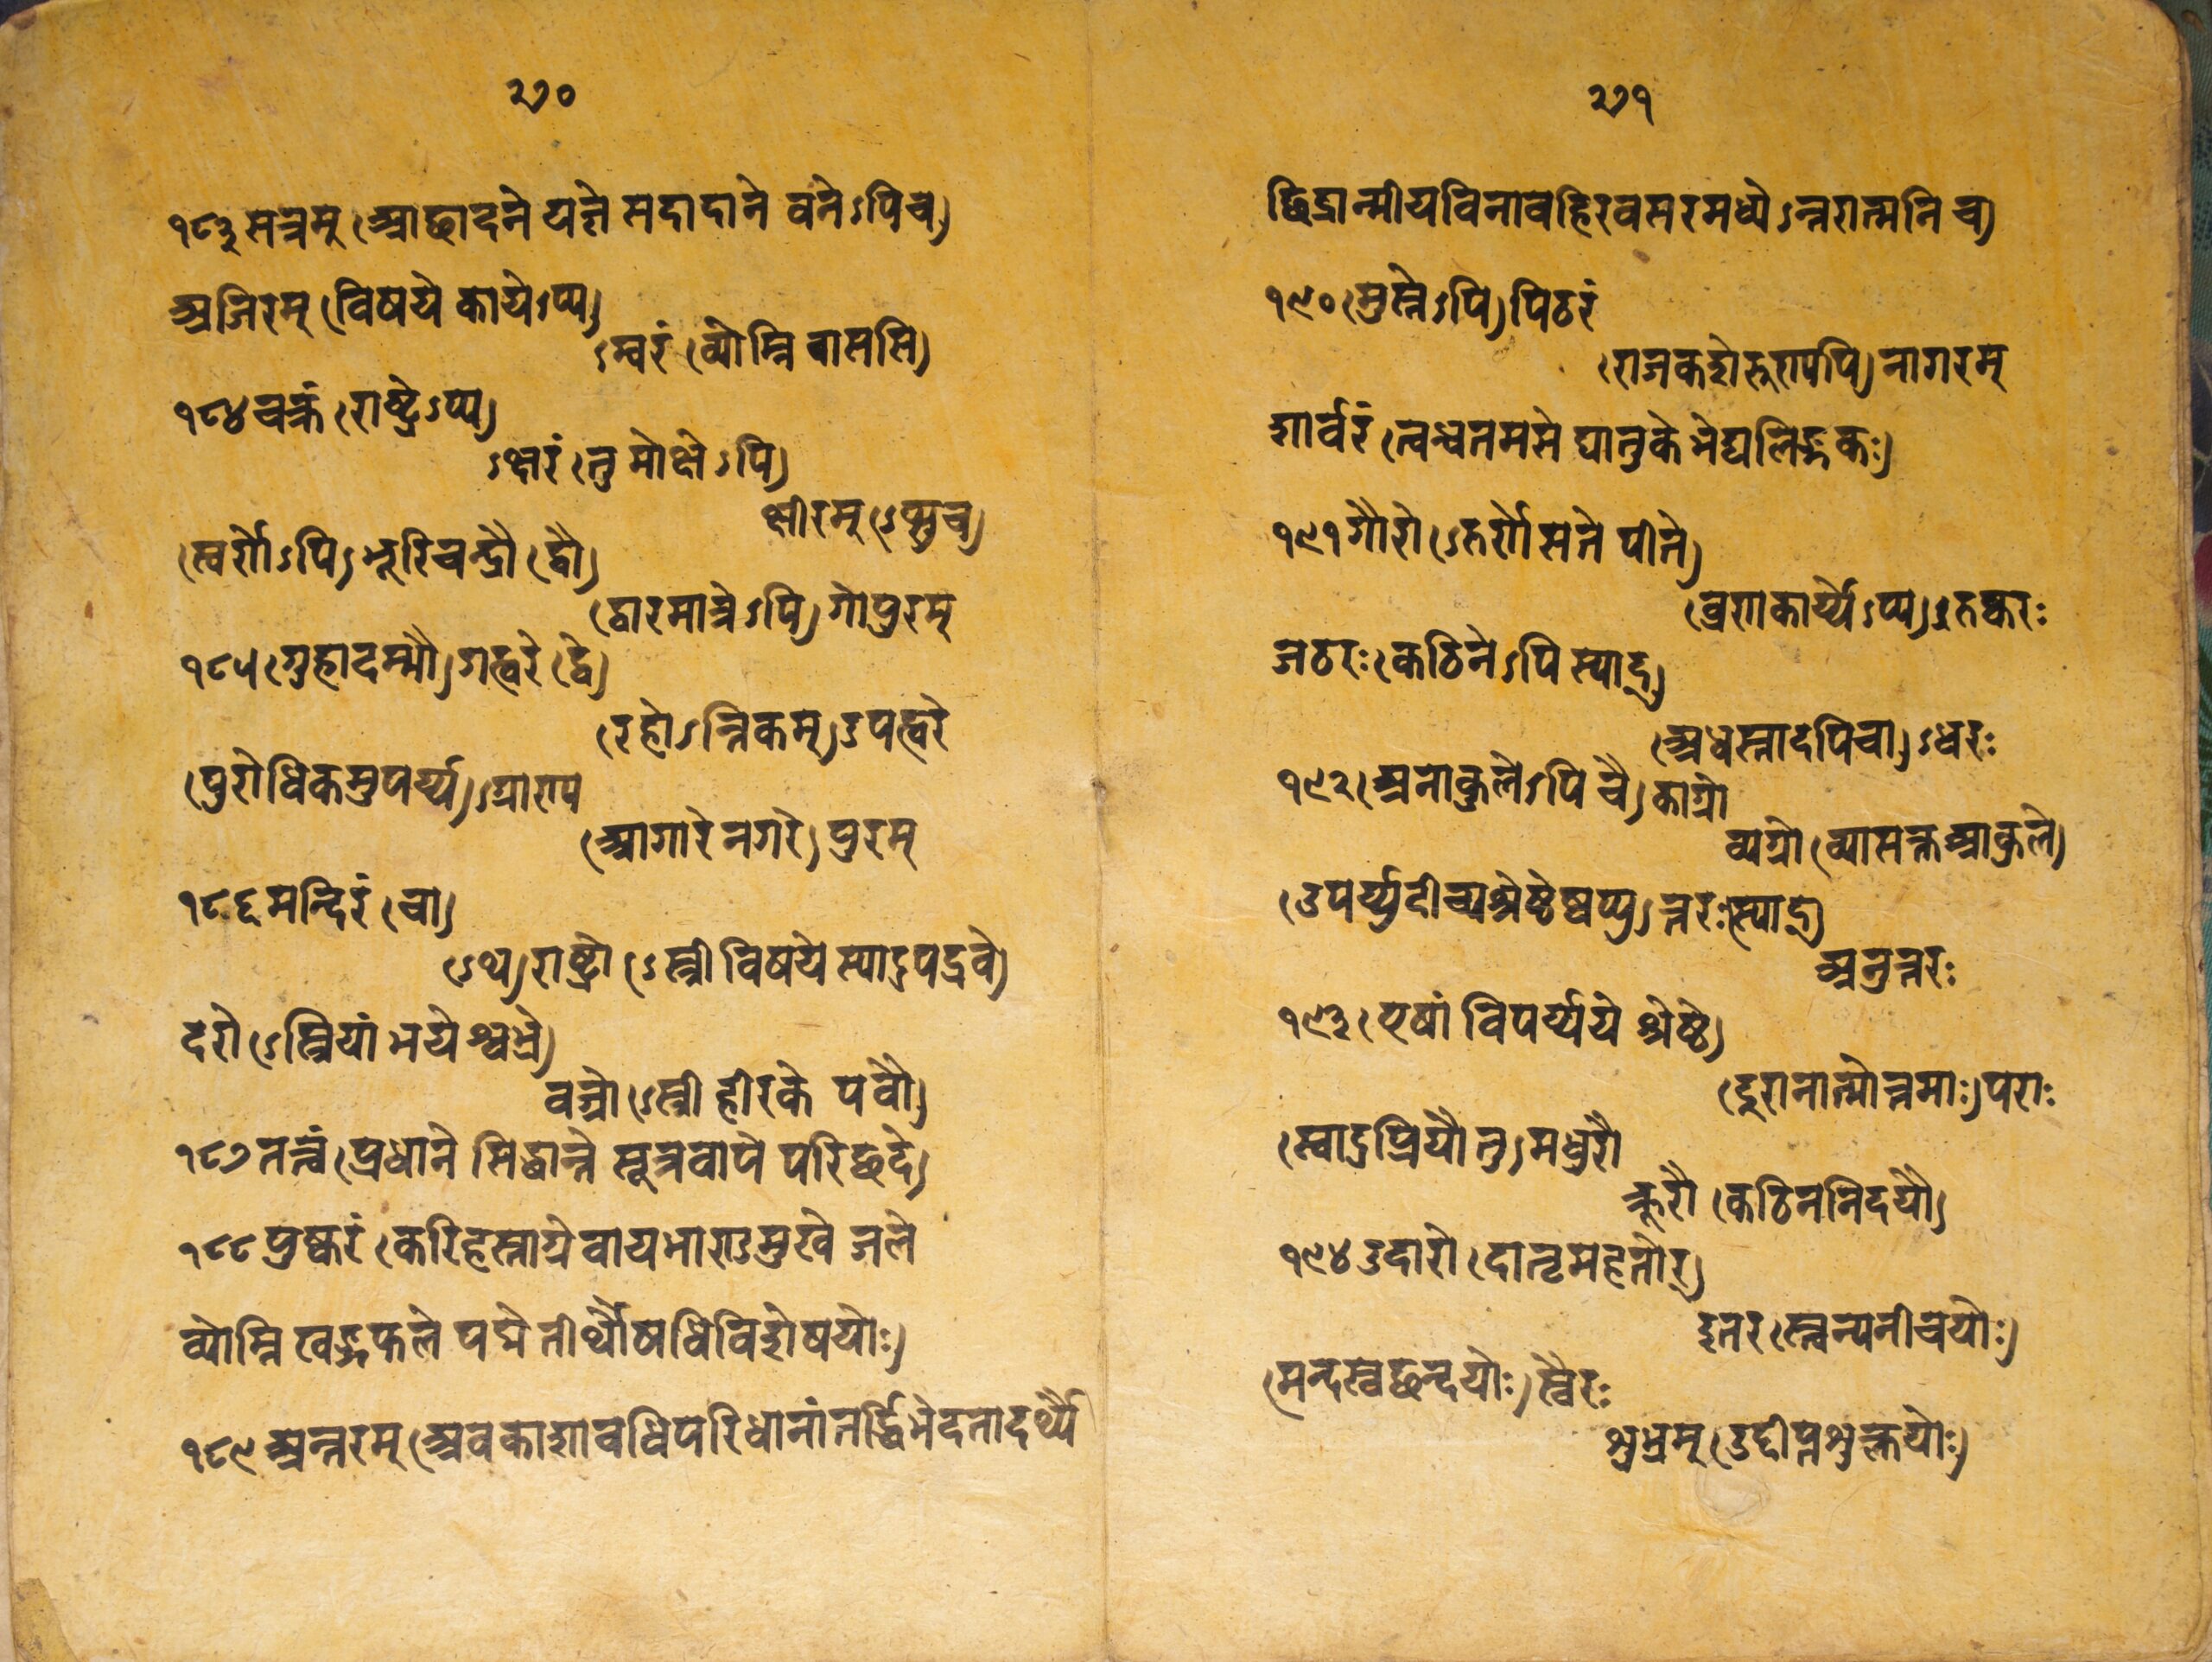 २७०
१८३ सत्रम् (आछादने यज्ञे सदादाने वनेऽपिच)
अजिरम् (विषये कायेऽप्य)
ऽम्बरं (व्योम्नि वाससि)
१८४ चक्रं (राष्ट्रेऽप्य)
ऽक्षरं (तु मोक्षेऽपि)
क्षीरम् (ऽप्सुच)
(स्वर्णोऽपि) भूरिचन्द्रौ (द्वौ)
(द्वारमात्रेऽपि) गोपुरम्
१८५ (गुहादम्भौ) गह्वरे (द्वे)
(रहोऽन्तिकम्) उपह्वरे
(पुरोधिकमुपर्य्य) ऽग्राण्य
(आगारे नगरे) पुरम्
१८६ मन्दिरं (चा)
(ऽथ) राष्ट्रो (ऽस्त्री विषये स्यादुपद्रवे)
दरो (ऽस्त्रियां भये श्वभ्रे)
वज्रो (ऽस्त्री हीरके पवौ)
१८७ तन्त्रं (प्रधाने सिद्धान्ते सूत्रवापे परिछदे)
१८८ पुष्करं (करिहस्ताग्रे वाद्यभाण्डमुखे जले
व्योम्नि खड्गफले पद्मे तीर्थौषधिविशेषयोः)
१८९ अन्तरम् (अवकाशावधिपरिधानांतर्द्धिभेदतादर्थ्ये
२७१
छिद्रात्मीयविनावहिरवसरमध्येऽन्तरात्मनि च)
१९० (मुस्तेऽपि) पिठरं
(राजकशेरुण्यपि) नागरम्
शार्वरं (त्वन्धतमसे घातुके भेद्यलिङ्गकः)
१९१ गौरो (ऽरुणे सिते पीते)
(व्रणकार्य्येऽप्य) ऽरुष्करः
जठरः (कठिनेऽपि स्याद्)
(अधस्तादपिचा) ऽधरः
१९२ (अनाकुलेऽपि चै) काग्रो
व्यग्रो (व्यासक्तआकुले)
(उपर्य्युदीच्यश्रेष्ठेष्वप्यु) त्तरः (स्याद्)
अनुत्तरः
१९३ (एषां विपर्य्यये श्रेष्ठे)
(दूरानात्मोत्तमाः) पराः
(स्वादुप्रियौ तु) मधुरौ
क्रूरौ (कठिननिदयौ)
१९४ उदारो (दातृमहतोर्)
इतर (स्त्वन्यनीचयोः)
(मन्दस्वछन्दयोः) स्वैरः
शुभ्रम् (उद्दीप्तशुक्लयोः)